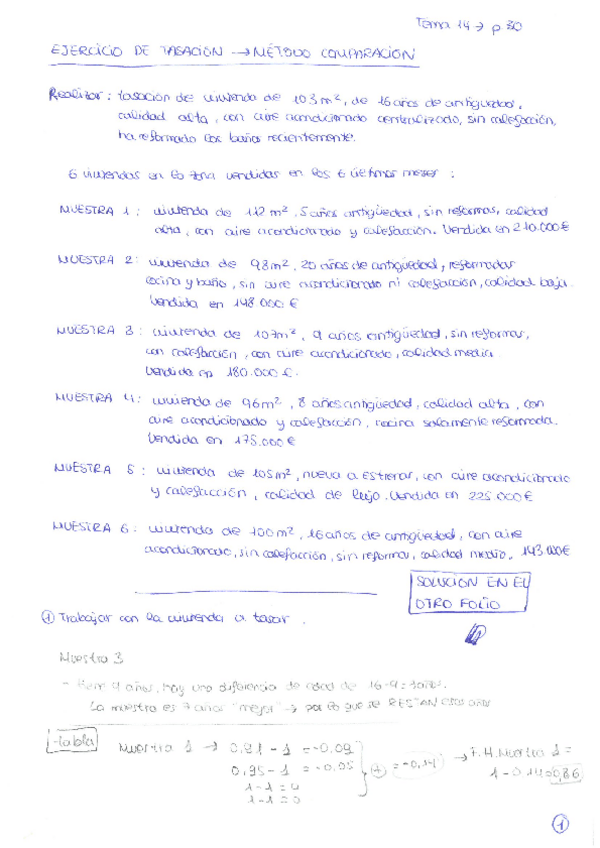 Tema 14 → p 30
EJERCICIO DE TASACIÓN → MÉTODO COMPARACIÓN
Realizar: tasación de vivienda de 103 m², de 16 años de antigüedad,
calidad alta, con aire acondicionado centralizado, sin calefacción,
ha reformado los baños recientemente.
6 viviendas en la zona vendidas en los 6 últimos meses:
MUESTRA 1: vivienda de 112 m², 5 años antigüedad, sin reformas, calidad
alta, con aire acondicionado y calefacción. Vendida en 210.000 €
MUESTRA 2: vivienda de 98 m², 20 años de antigüedad, reformadas
cocina y baño, sin aire acondicionado ni calefacción, calidad baja.
Vendida en 148.000 €
MUESTRA 3: vivienda de 107 m², 9 años antigüedad, sin reformas,
con calefacción, con aire acondicionado, calidad media.
Vendida en 180.000 €.
MUESTRA 4: vivienda de 96 m², 8 años antigüedad, calidad alta, con
aire acondicionado y calefacción, cocina solamente reformada.
Vendida en 175.000 €
MUESTRA 5: vivienda de 105 m², nueva a estrenar, con aire acondicionado
y calefacción, calidad de lujo. Vendida en 225.000 €
MUESTRA 6: vivienda de 100 m², 16 años de antigüedad, con aire
acondicionado, sin calefacción, sin reformar, calidad medio, 143.000 €
SOLUCION EN EL
OTRO FOLIO
① Trabajar con la vivienda a tasar.
Muestra 3
- 9 años, hay una diferencia de edad de 16-9=7 años.
La muestra es 7 años "mejor" → por lo que se RESTAN
tabla Muestra 1 → 0,91 - 1 = -0,09
0,95 - 1 = -0,05 (+) = -0,14 → F.H. Muestra 1 =
1-1 = 0 1 - 0,14 = 0,86
1-1 = 0
①